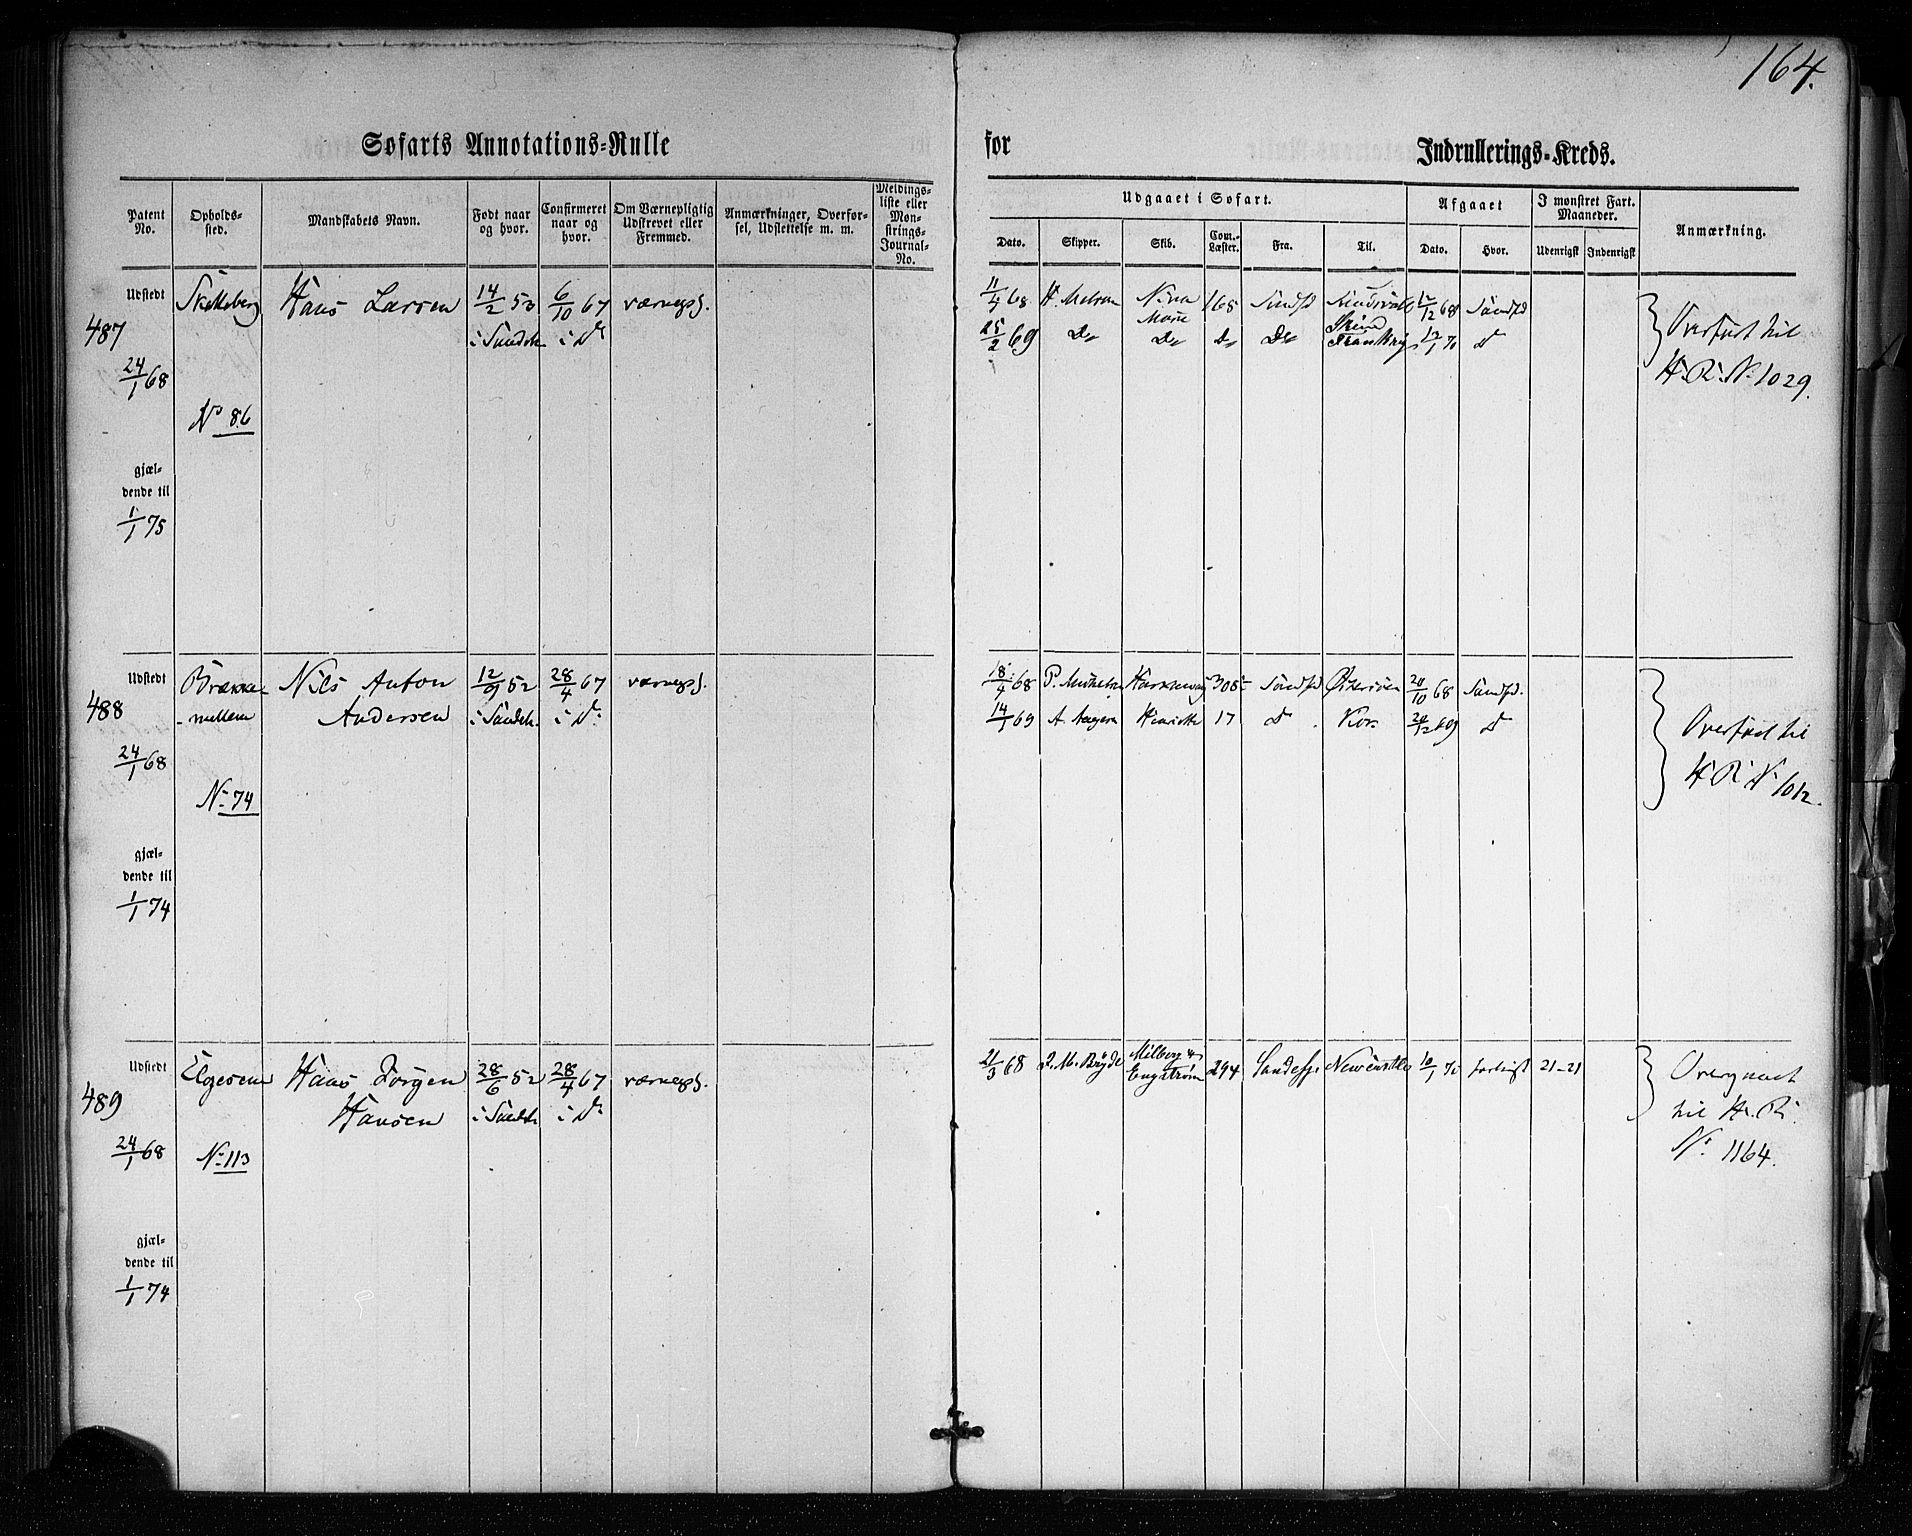 164.
Søfarts Annotations-Rulle
for
Indrullerings-Kreds.
Patent No.
Opholds-sted.
Mandskabets Navn.
Født naar og hvor.
Confirmeret naar og hvor.
Om Værnepligtig Udskrevet eller Fremmed.
Anmærkninger, Overfør-sel, Udslettelse m. m.
Meldings-liste eller Møn-strings-Journal-No.
Udgaaet i Søfart.
Afgaaet
I mønstret Fart. Maaneder.
Anmærkning.
Dato.
Skipper.
Skib.
Com.-Læster.
Fra.
Til.
Dato.
Hvor.
Udenrigsk
Indenrigsk
Udstedt
487
24/1 68
No 86
gjæl-
dende til
1/1 75
Hans Larsen
14/2 53
i Sandeh.
6/10 67
i Do
værnepl.
11/4 68
Nina Marie
168
Sandfd
12/12 68
Sandfd
25/2 69
Do
Do
Do
Do
12/1 70
Do
Overført til
H. R. No 1029.
Udstedt
488
24/1 68
No 74
gjæl-
dende til
1/1 74
Nils Anton
Andersen
12/9 52
i Sandeh.
28/4 67
i Do
værnepl.
18/4 68
Sandfd
Østersøen
20/10 68
Sandfd.
14/1 69
Henriette
17
Do
69
Do
Overført til
H. R. No 1012.
Udstedt
489
24/1 68
No 113
gjæl-
dende til
1/1 74
Hans Jørgen
Hansen
28/6 52
i Sandeh
28/4 67
i Do
værnepl.
21/3 68
J. M. Bryde
Engstrøm
294
Sandefj.
Newcastle
10/1 70
21-21
Overgaaet
til H. R.
No 1164.